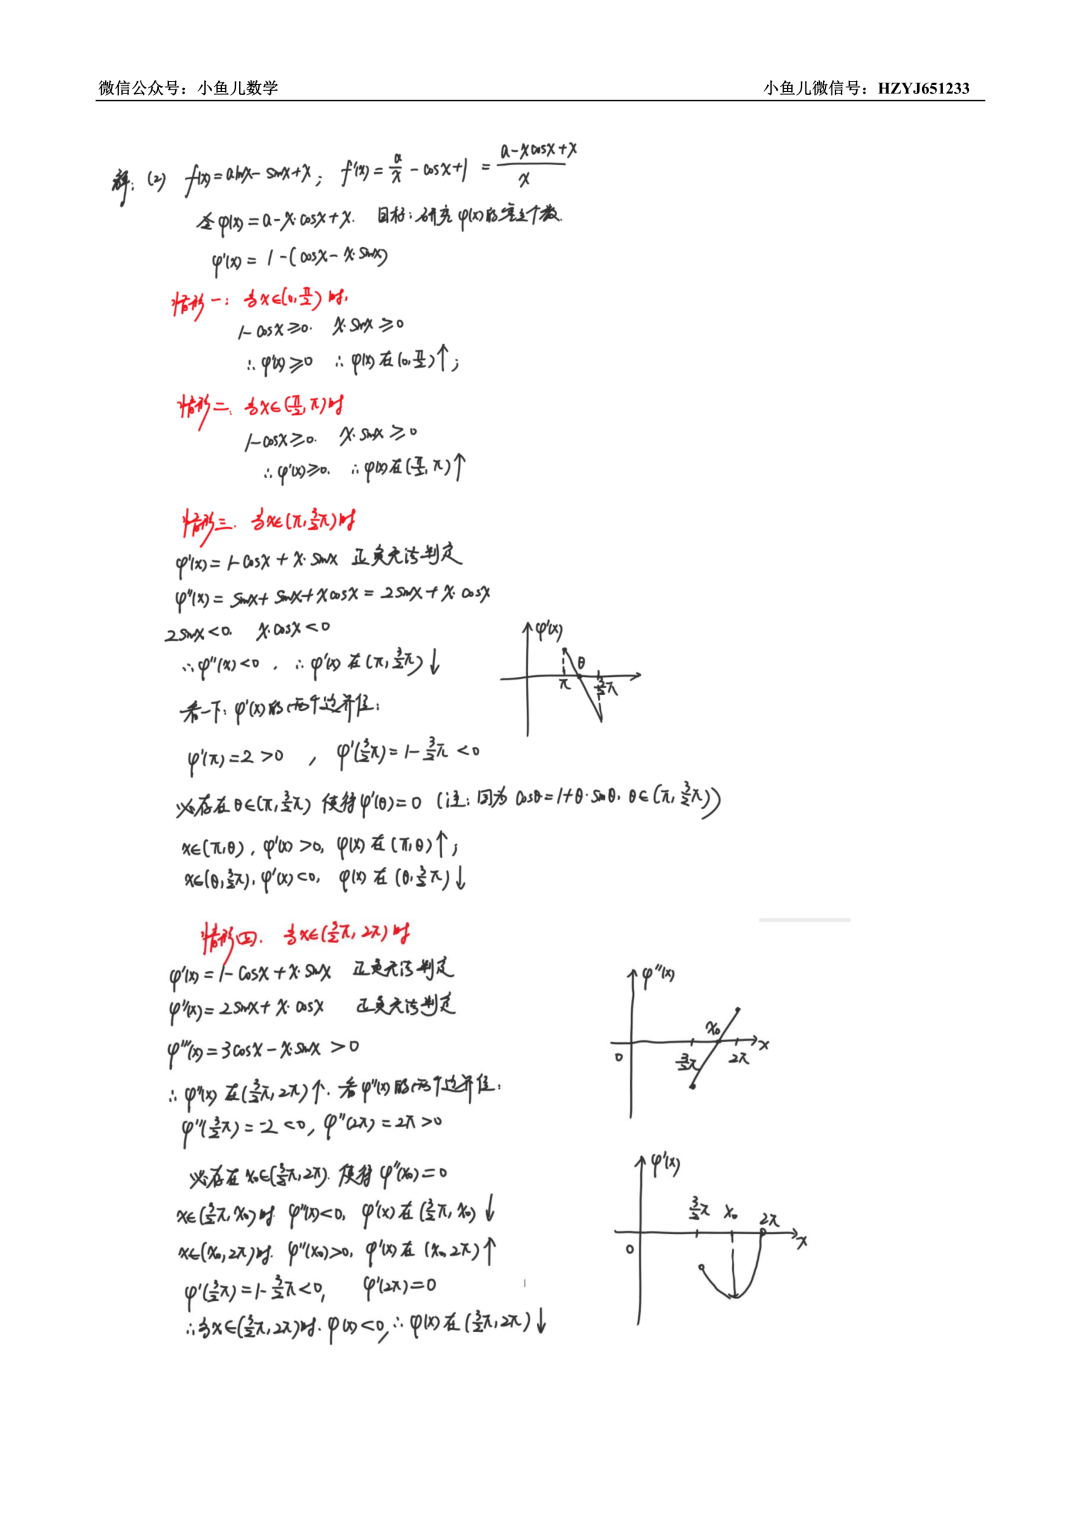 微信公众号：小鱼儿数学 小鱼儿微信号：HZYJ651233
解：(2) f(x)=alnx-sinx+x； f'(x)=a/x-cosx+1=(a-xcosx+x)/x
令φ(x)=a-x·cosx+x. 目标：研究φ(x)的零点个数.
φ'(x)=1-(cosx-x·sinx)
情形一：当x∈(0,π/2)时，
1-cosx≥0. x·sinx≥0
∴φ'(x)≥0 ∴φ(x)在(0,π/2)↑；
情形二、当x∈(π/2,π)时
1-cosx≥0. x·sinx≥0
∴φ'(x)≥0. ∴φ(x)在(π/2,π)↑
情形三. 当x∈(π,3/2π)时
φ'(x)=1-cosx+x·sinx 正负无法判定
φ''(x)=sinx+sinx+xcosx=2sinx+x·cosx
2sinx<0. x·cosx<0
∴φ''(x)<0，∴φ'(x)在(π,3/2π)↓
φ'(x) θ π 3/2π
看一下：φ'(x)的两个边界值：
φ'(π)=2>0 ， φ'(3/2π)=1-3/2π<0
必存在θ∈(π,3/2π) 使得φ'(θ)=0 (注：因为cosθ=1+θ·sinθ. θ∈(π,3/2π))
x∈(π,θ)，φ'(x)>0，φ(x)在(π,θ)↑；
x∈(θ,3/2π)，φ'(x)<0，φ(x)在(θ,3/2π)↓
情形四. 当x∈(3/2π,2π)时
φ'(x)=1-cosx+x·sinx 正负无法判定
φ''(x)=2sinx+x·cosx 正负无法判定
φ'''(x)=3cosx-x·sinx>0
φ''(x) x₀ x 0 3/2π 2π
∴φ''(x)在(3/2π,2π)↑. 看φ''(x)的两个边界值：
φ''(3/2π)=-2<0，φ''(2π)=2π>0
必存在x₀∈(3/2π,2π). 使得φ''(x₀)=0
x∈(3/2π,x₀)时 φ''(x)<0，φ'(x)在(3/2π,x₀)↓
x∈(x₀,2π)时. φ''(x₀)>0，φ'(x)在(x₀,2π)↑
φ'(x) 3/2π x₀ 2π x 0
φ'(3/2π)=1-3/2π<0， φ'(2π)=0
∴当x∈(3/2π,2π)时. φ(x)<0，∴φ(x)在(3/2π,2π)↓